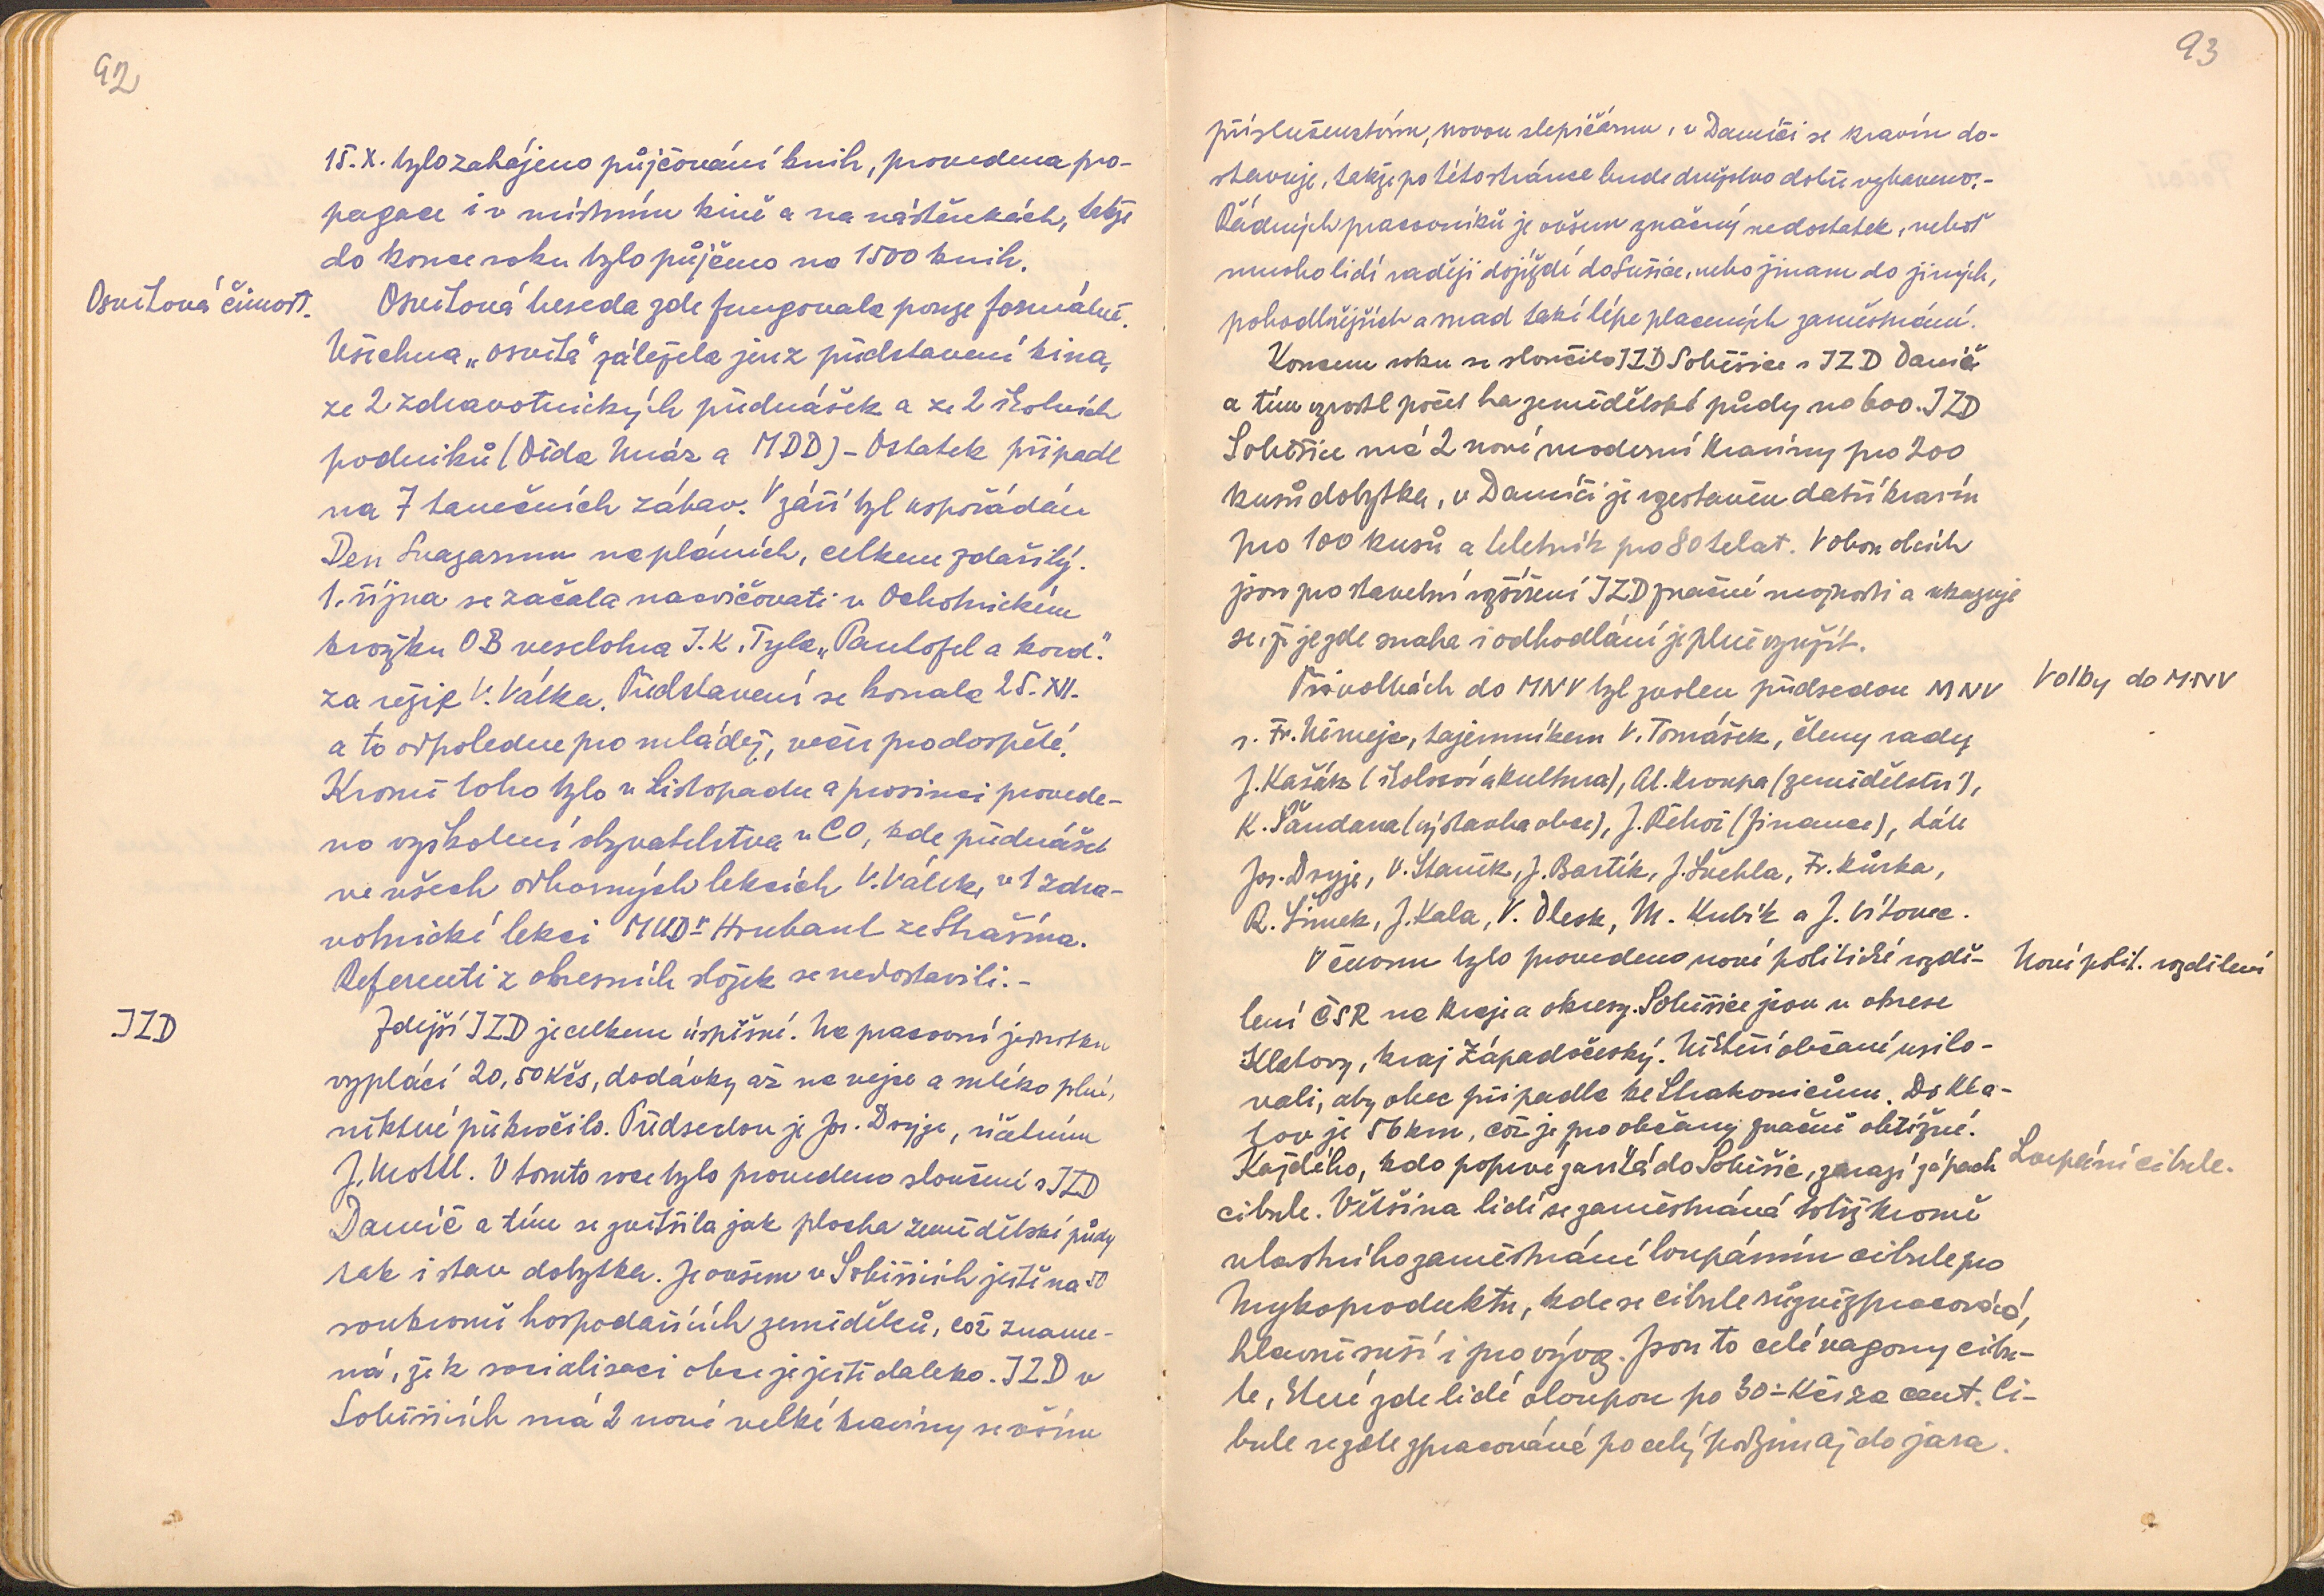 92
15. X. bylo zahájeno půjčování knih, provedena pro-
pagace i v místním kině a na nástěnkách, takže
do konce roku bylo půjčeno na 1500 knih.
Osvětová činnost.
Osvětová beseda zde fungovala pouze formálně.
Všechna „osvěta" záležela jen z představení kina,
ze 2 zdravotnických přednášek a ze 2 školních
podniků (Děda Mráz a MDD) - Ostatek připadl
na 7 tanečních zábav. V září byl uspořádán
Den Svazarmu na pláních, celkem zdařilý.
1. října se začala nacvičovati v Ochotnickém
kroužku OB veselohra J. K. Tyla „Pantofel a kord."
za režie V. Válka. Představení se konala 25. XII.
a to odpoledne pro mládež, večer pro dospělé.
Kromě toho bylo v listopadu a prosinci provede-
no vyškolení obyvatelstva v CO, kde přednášel
ve všech odborných lekcích V. Válek, v 1 zdra-
votnické lekci MUDr Hrubant ze Strašína.
Referenti z okresních složek se nedostavili. -
JZD
Zdejší JZD je celkem úspěšné. Na pracovní jednotku
vyplácí 20,50 Kčs, dodávky až na vejce a mléko plní,
některé překročilo. Předsedou je Jos. Dryje, účetním
J. Mottl. V tomto roce bylo provedeno sloučení s JZD
Damíč a tím se zvětšila jak plocha zemědělské půdy
tak i stav dobytka. Je ovšem v Soběšicích ještě na 50
soukromě hospodařících zemědělců, což zname-
ná, že k socialisaci obce je ještě daleko. JZD v
Soběšicích má 2 nové velké kravíny se vším
93
příslušenstvím, novou slepičárnu, v Damíči se kravín do-
stavuje, takže po této stránce bude družstvo dobře vybaveno. -
Řádných pracovníků je ovšem značný nedostatek, neboť
mnoho lidí raději dojíždí do Sušice, nebo jinam do jiných,
pohodlnějších a snad také lépe placených zaměstnání.
Koncem roku se sloučilo JZD Soběšice s JZD Damíč
a tím vzrostl počet ha zemědělské půdy na 600. JZD
Soběšice má 2 nové moderní kravíny pro 200
kusů dobytka, v Damíči je vystavěn další kravín
pro 100 kusů a teletník pro 80 telat. V obou obcích
jsou pro stavební rozšíření JZD značné možnosti a ukazuje
se, že je zde snaha i odhodlání je plně využít.
Volby do MNV
Při volbách do MNV byl zvolen předsedou MNV
s. Fr. Němejc, tajemníkem V. Tomášek, členy rady
J. Kašák (školství a kultura), Al. Kroupa (zemědělství),
K. Šandara (výstavba obce), J. Řehoř (finance), dále
Jos. Dryje, V. Staněk, J. Bartík, J. Švehla, Fr. Kůrka,
R. Šimek, J. Kala, V. Dlesk, M. Kubík a J. Vítovec.
Nové polit. rozdělení
V červnu bylo provedeno nové politické rozdě-
lení ČSR na kraje a okresy. Soběšice jsou v okrese
Klatovy, kraj Západočeský. Někteří občané usilo-
vali, aby obec připadla ke Strakonicům. Do Kla-
tov je 56 km, což je pro občany značně obtížné.
Loupání cibule.
Každého, kdo poprvé zavítá do Soběšic, zarazí zápach
cibule. Většina lidí se zaměstnává totiž kromě
vlastního zaměstnání loupáním cibule pro
Mykoproduktu, kde se cibule různě zpracovává,
hlavně suší i pro vývoz. Jsou to celé vagony cibu-
le, které zde lidé oloupou po 30.- Kčs za cent. Ci-
bule se zde zpracovává po celý podzim až do jara.